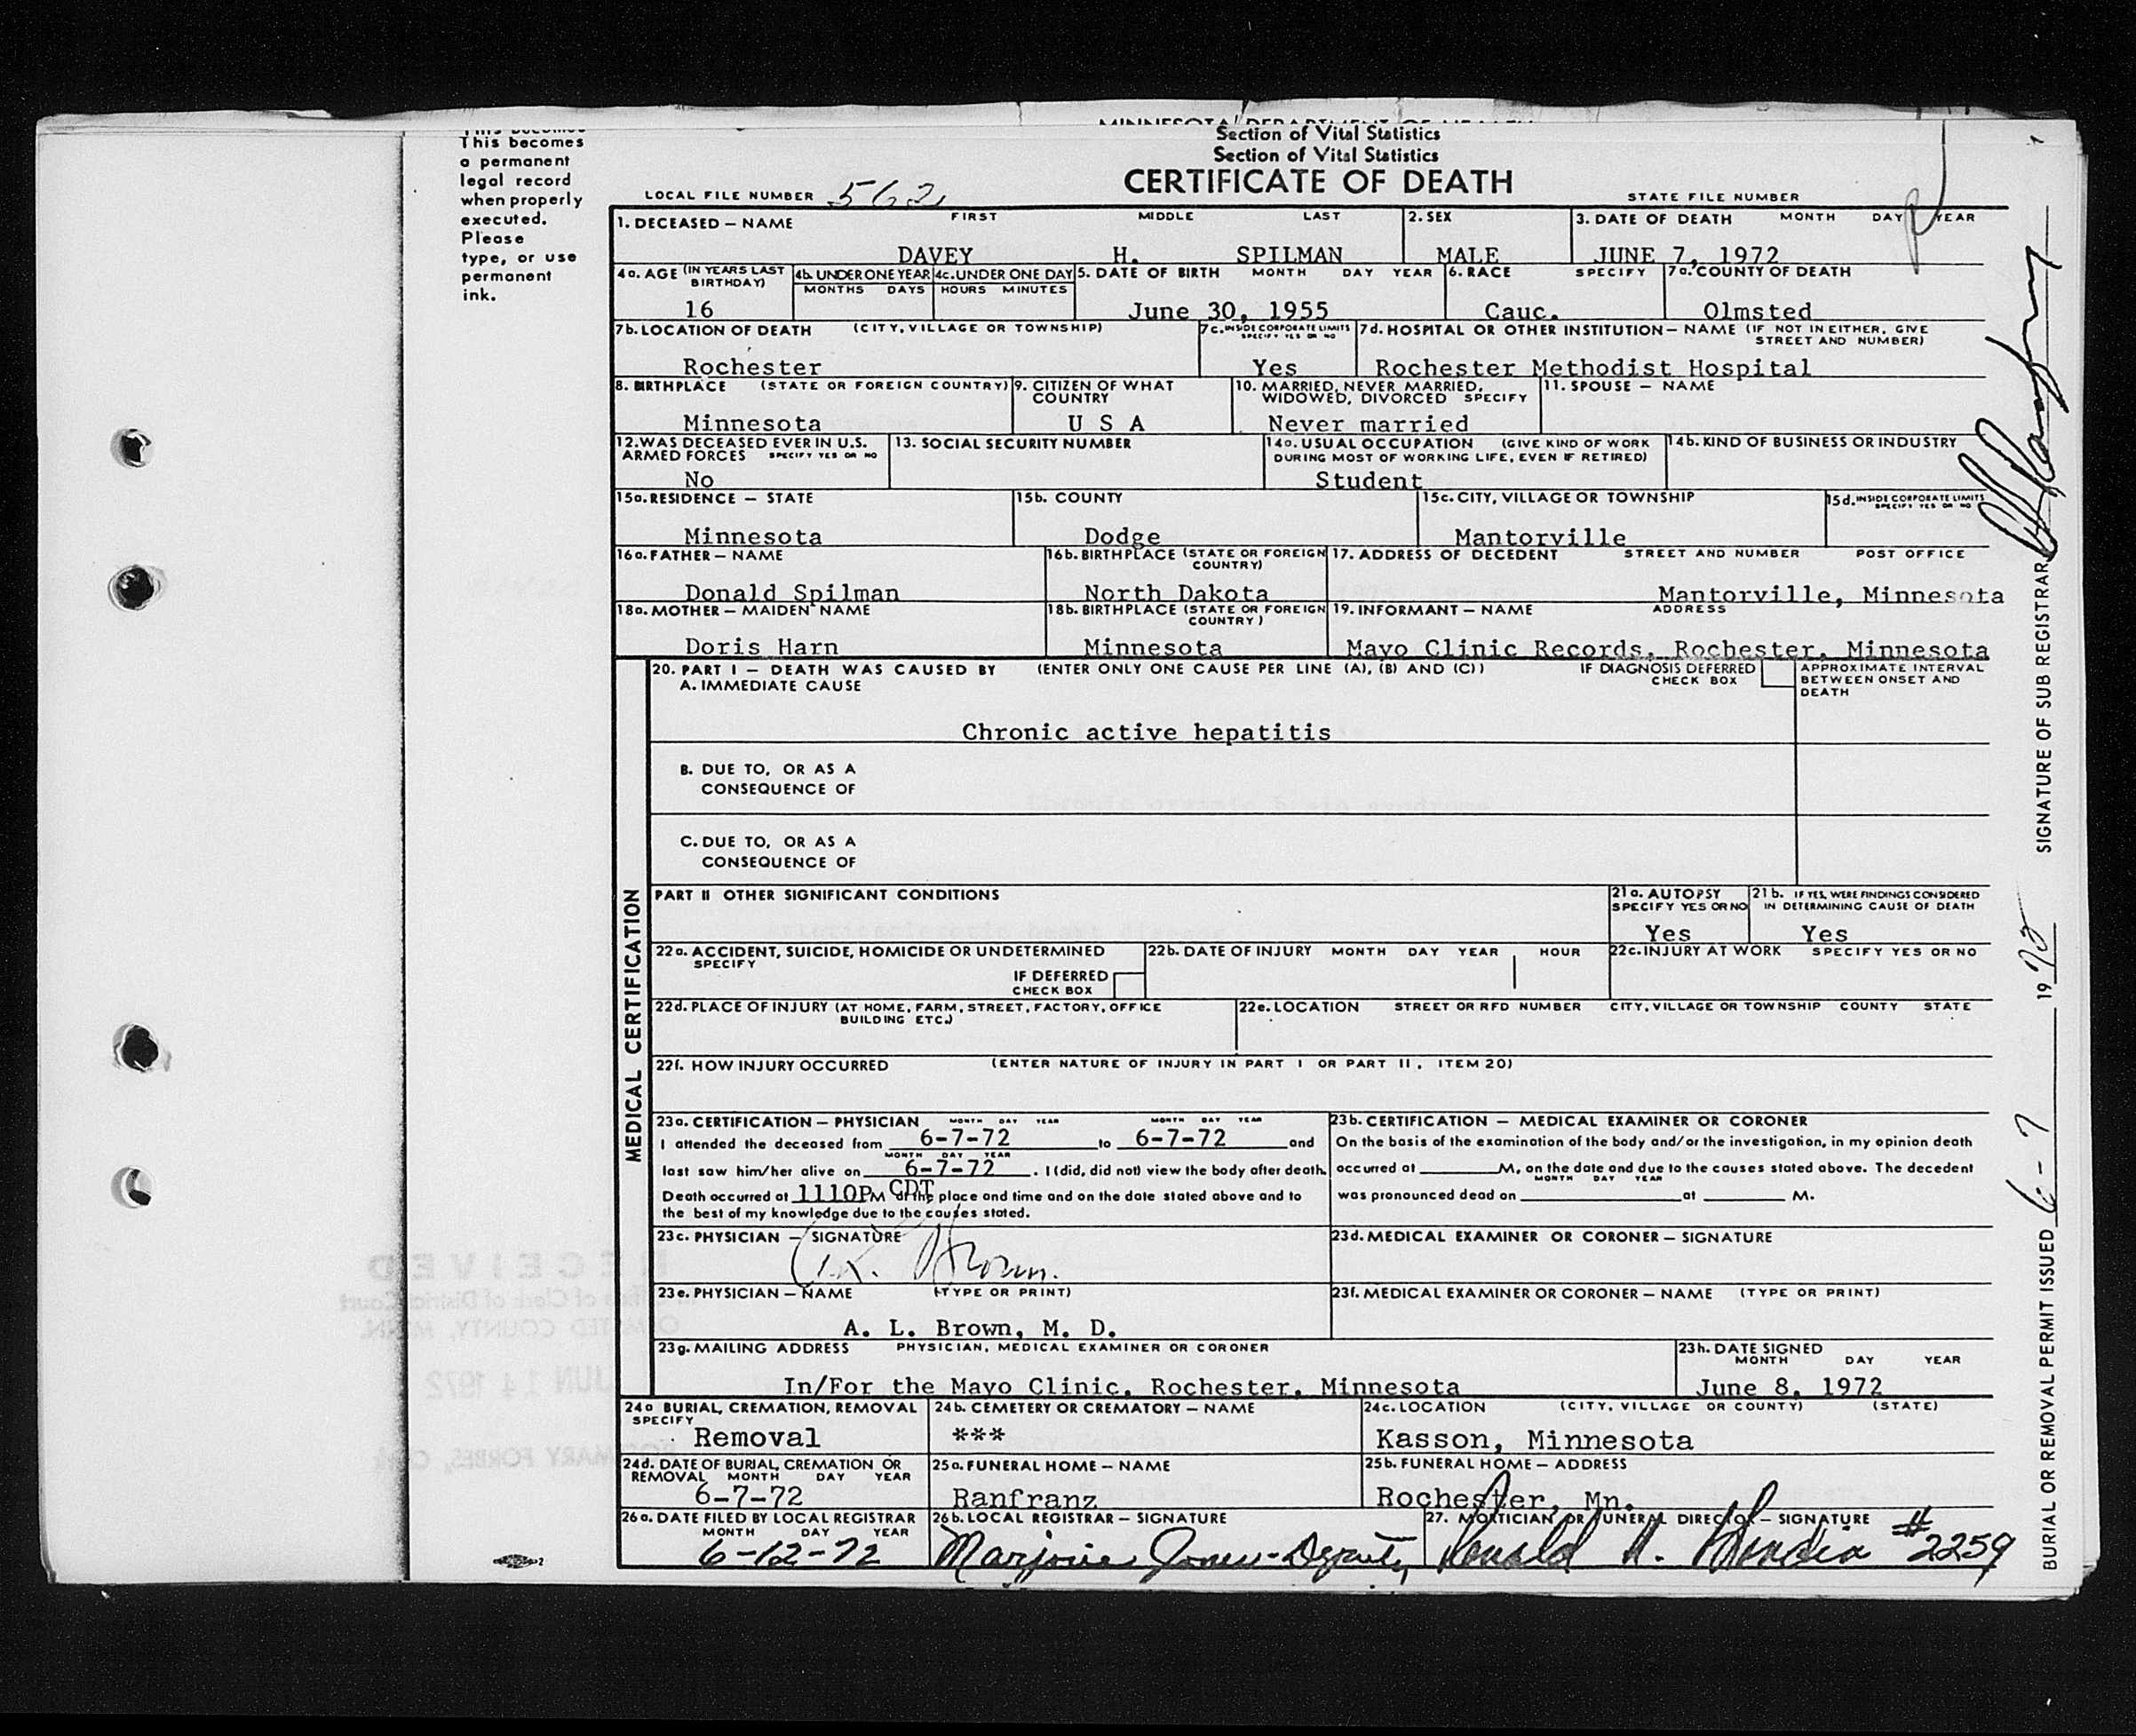 This becomes
a permanent
legal record
when properly
executed.
Please
type, or use
permanent
ink.
MINNESOTA DEPARTMENT OF HEALTH
Section of Vital Statistics
Section of Vital Statistics
CERTIFICATE OF DEATH
LOCAL FILE NUMBER 562
STATE FILE NUMBER
1. DECEASED — NAME FIRST MIDDLE LAST 2. SEX 3. DATE OF DEATH MONTH DAY YEAR
DAVEY H. SPILMAN MALE JUNE 7, 1972
4a. AGE (IN YEARS LAST BIRTHDAY) 4b. UNDER ONE YEAR 4c. UNDER ONE DAY 5. DATE OF BIRTH MONTH DAY YEAR 6. RACE SPECIFY 7a. COUNTY OF DEATH
MONTHS DAYS HOURS MINUTES
16 June 30, 1955 Cauc. Olmsted
7b. LOCATION OF DEATH (CITY, VILLAGE OR TOWNSHIP) 7c. INSIDE CORPORATE LIMITS SPECIFY YES OR NO 7d. HOSPITAL OR OTHER INSTITUTION — NAME (IF NOT IN EITHER, GIVE STREET AND NUMBER)
Rochester Yes Rochester Methodist Hospital
8. BIRTHPLACE (STATE OR FOREIGN COUNTRY) 9. CITIZEN OF WHAT COUNTRY 10. MARRIED, NEVER MARRIED, WIDOWED, DIVORCED SPECIFY 11. SPOUSE — NAME
Minnesota U S A Never married
12. WAS DECEASED EVER IN U.S. ARMED FORCES SPECIFY YES OR NO 13. SOCIAL SECURITY NUMBER 14a. USUAL OCCUPATION (GIVE KIND OF WORK DURING MOST OF WORKING LIFE, EVEN IF RETIRED) 14b. KIND OF BUSINESS OR INDUSTRY
No Student
15a. RESIDENCE — STATE 15b. COUNTY 15c. CITY, VILLAGE OR TOWNSHIP 15d. INSIDE CORPORATE LIMITS SPECIFY YES OR NO
Minnesota Dodge Mantorville
16a. FATHER — NAME 16b. BIRTHPLACE (STATE OR FOREIGN COUNTRY) 17. ADDRESS OF DECEDENT STREET AND NUMBER POST OFFICE
Donald Spilman North Dakota Mantorville, Minnesota
18a. MOTHER — MAIDEN NAME 18b. BIRTHPLACE (STATE OR FOREIGN COUNTRY) 19. INFORMANT — NAME ADDRESS
Doris Harn Minnesota Mayo Clinic Records, Rochester, Minnesota
MEDICAL CERTIFICATION
20. PART I — DEATH WAS CAUSED BY (ENTER ONLY ONE CAUSE PER LINE (A), (B) AND (C)) IF DIAGNOSIS DEFERRED CHECK BOX APPROXIMATE INTERVAL BETWEEN ONSET AND DEATH
A. IMMEDIATE CAUSE
Chronic active hepatitis
B. DUE TO, OR AS A
CONSEQUENCE OF
C. DUE TO, OR AS A
CONSEQUENCE OF
PART II OTHER SIGNIFICANT CONDITIONS 21a. AUTOPSY SPECIFY YES OR NO 21b. IF YES, WERE FINDINGS CONSIDERED IN DETERMINING CAUSE OF DEATH
Yes Yes
22a. ACCIDENT, SUICIDE, HOMICIDE OR UNDETERMINED SPECIFY 22b. DATE OF INJURY MONTH DAY YEAR HOUR 22c. INJURY AT WORK SPECIFY YES OR NO
IF DEFERRED
CHECK BOX
22d. PLACE OF INJURY (AT HOME, FARM, STREET, FACTORY, OFFICE BUILDING ETC.) 22e. LOCATION STREET OR RFD NUMBER CITY, VILLAGE OR TOWNSHIP COUNTY STATE
22f. HOW INJURY OCCURRED (ENTER NATURE OF INJURY IN PART I OR PART II, ITEM 20)
23a. CERTIFICATION — PHYSICIAN MONTH DAY YEAR MONTH DAY YEAR
I attended the deceased from 6-7-72 to 6-7-72 and
MONTH DAY YEAR
last saw him/her alive on 6-7-72. I (did, did not) view the body after death.
Death occurred at 1110P M CDT at the place and time and on the date stated above and to
the best of my knowledge due to the causes stated.
23b. CERTIFICATION — MEDICAL EXAMINER OR CORONER
On the basis of the examination of the body and/or the investigation, in my opinion death
occurred at M, on the date and due to the causes stated above. The decedent
MONTH DAY YEAR
was pronounced dead on at M.
23c. PHYSICIAN — SIGNATURE 23d. MEDICAL EXAMINER OR CORONER — SIGNATURE
Brown.
23e. PHYSICIAN — NAME (TYPE OR PRINT) 23f. MEDICAL EXAMINER OR CORONER — NAME (TYPE OR PRINT)
A. L. Brown, M. D.
23g. MAILING ADDRESS PHYSICIAN, MEDICAL EXAMINER OR CORONER 23h. DATE SIGNED MONTH DAY YEAR
In/For the Mayo Clinic, Rochester, Minnesota June 8, 1972
24a BURIAL, CREMATION, REMOVAL SPECIFY 24b. CEMETERY OR CREMATORY — NAME 24c. LOCATION (CITY, VILLAGE OR COUNTY) (STATE)
Removal *** Kasson, Minnesota
24d. DATE OF BURIAL, CREMATION OR REMOVAL MONTH DAY YEAR 25a. FUNERAL HOME — NAME 25b. FUNERAL HOME — ADDRESS
6-7-72 Ranfranz Rochester, Mn.
26a. DATE FILED BY LOCAL REGISTRAR MONTH DAY YEAR 26b. LOCAL REGISTRAR — SIGNATURE 27. MORTICIAN OR FUNERAL DIRECTOR — SIGNATURE
6-12-72 Marjorie Jones-Deputy Donald #2259
BURIAL OR REMOVAL PERMIT ISSUED 6-7 1972 SIGNATURE OF SUB REGISTRAR
RECEIVED
Office of Clerk of District Court
OLMSTED COUNTY, MINN.
JUN 14 1972
ROSEMARY FORBES, Clerk